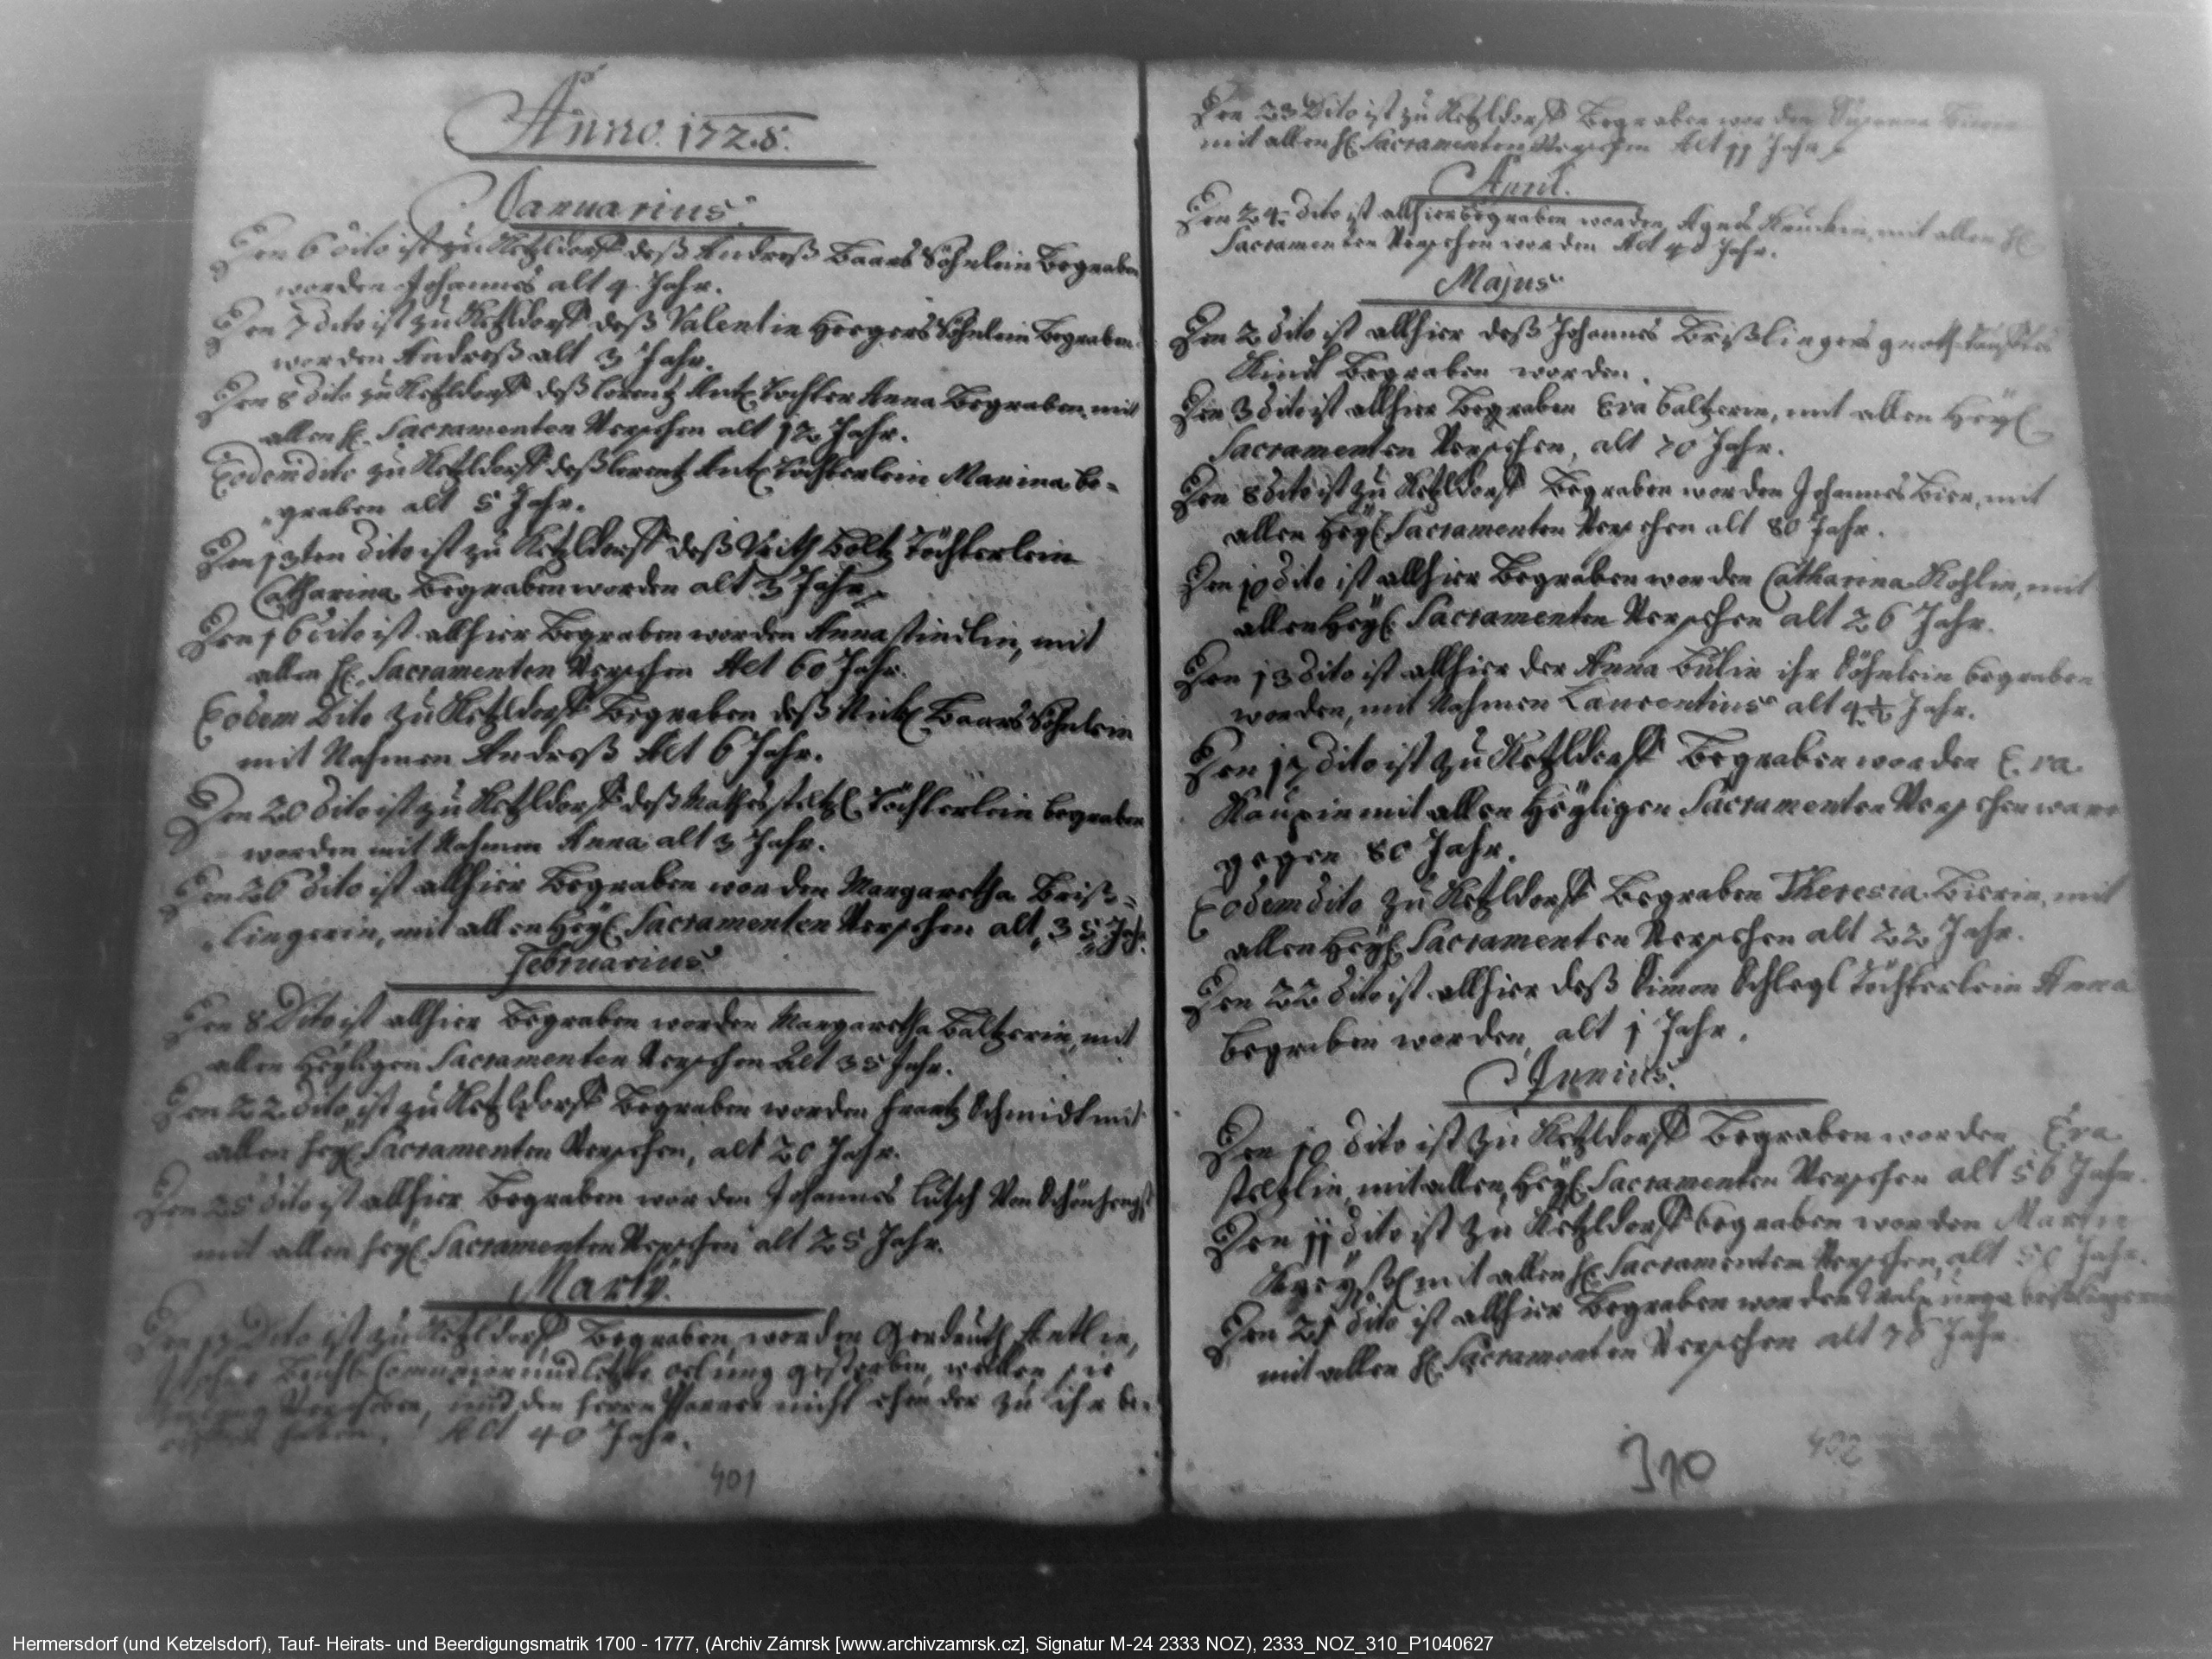 Anno. 1728.
Januarius.
Den 6 dito ist zu Ketzldorff deß Andreß Baars Söhnlein Begraben
worden Johannes alt 4 Jahr.
Den 7 dito ist zu Ketzldorff deß Valentin Söhnlein Begraben
worden Andreß alt 3 Jahr.
Den 8 dito zu Ketzldorff deß Lorentz Tochter Anna Begraben, mit
allen H. Sacramenten Versehen alt 12 Jahr.
Eodem dito zu Ketzldorff deß Lorentz Töchterlein Marina be=
graben alt 5 Jahr.
Den 13ten dito ist zu Ketzldorff deß Veith Boltz Töchterlein
Catharina Begraben worden alt 3 Jahr
Den 16 dito ist allhier Begraben worden Anna Kindlin, mit
allen H. Sacramenten Versehen Alt 60 Jahr.
Eodem Dito zu Ketzldorff Begraben deß Baars Söhnlein
mit Nahmen Andreß Alt 6 Jahr.
Den 20 dito ist zu Ketzldorff deß Mathes Steltzl Töchterlein begraben
worden mit Nahmen Anna alt 3 Jahr.
Den 26 dito ist allhier Begraben worden Margaretha Briß=
lingerin, mit allen Heyl. Sacramenten Versehen alt, 35 Jahr.
Februarius
Den 8 Dito ist allhier Begraben worden Margaretha Baltzerin, mit
allen Heyligen Sacramenten Versehen Alt 35 Jahr.
Den 22 dito ist zu Ketzldorff Begraben worden Frantz Schmidt mit
allen Heyl. Sacramenten Versehen, alt 20 Jahr.
Den 25 dito ist allhier Begraben worden Johannes Lutsch Von Schönhengst
mit allen Heyl. Sacramenten Versehen alt 25 Jahr.
Martÿ.
Den 17 Dito ist zu Ketzldorff Begraben worden Gerdruth
Beicht Communion und letzte oelung gestorben, weillen sie
und den Herrn Pfarrer nicht ehender zu ihr be=
haben. Alt 40 Jahr.
401
Den 23 Dito ist zu Ketzldorff Begraben worden
mit allen H. Sacramenten Versehen Alt 11 Jahr
April.
Den 24 dito ist allhier begraben worden Agnes mit allen H.
Sacramenten Versehen worden Alt 40 Jahr.
Majus
Den 2 dito ist allhier deß Johannes Brißlingers
Kind Begraben worden.
Den 3 dito ist allhier Begraben Eva Baltzerin, mit allen Heyl.
Sacramenten Versehen, alt 70 Jahr.
Den 8 dito ist zu Ketzldorff Begraben worden Johannes Bier, mit
allen Heyl. Sacramenten Versehen alt 80 Jahr.
Den 10 dito ist allhier Begraben worden Catharina Kohlin, mit
allen Heyl. Sacramenten Versehen alt 26 Jahr.
Den 13 dito ist allhier der Anna Bulin ihr Söhnlein begraben
worden, mit Nahmen Laurentius alt 4½ Jahr.
Den 17 dito ist zu Ketzldorff Begraben worden Eva
mit allen Heyligen Sacramenten Versehen ware
gegen 80 Jahr.
Eodem dito zu Ketzldorff Begraben Theresia Bierin, mit
allen Heyl. Sacramenten Versehen alt 22 Jahr.
Den 22 dito ist allhier deß Simon Schlegl Töchterlein Anna
begraben worden, alt 1 Jahr.
Junius.
Den 10 dito ist zu Ketzldorff Begraben worden Eva
Steltzlin, mit allen Heyl. Sacramenten Versehen alt 56 Jahr.
Den 11 dito ist zu Ketzldorff begraben worden
mit allen H. Sacramenten Versehen, alt 50 Jahr.
Den 21 dito ist allhier Begraben worden
mit allen H. Sacramenten Versehen alt 78 Jahr
310
402
Hermersdorf (und Ketzelsdorf), Tauf- Heirats- und Beerdigungsmatrik 1700 - 1777, (Archiv Zámrsk [www.archivzamrsk.cz], Signatur M-24 2333 NOZ), 2333_NOZ_310_P1040627